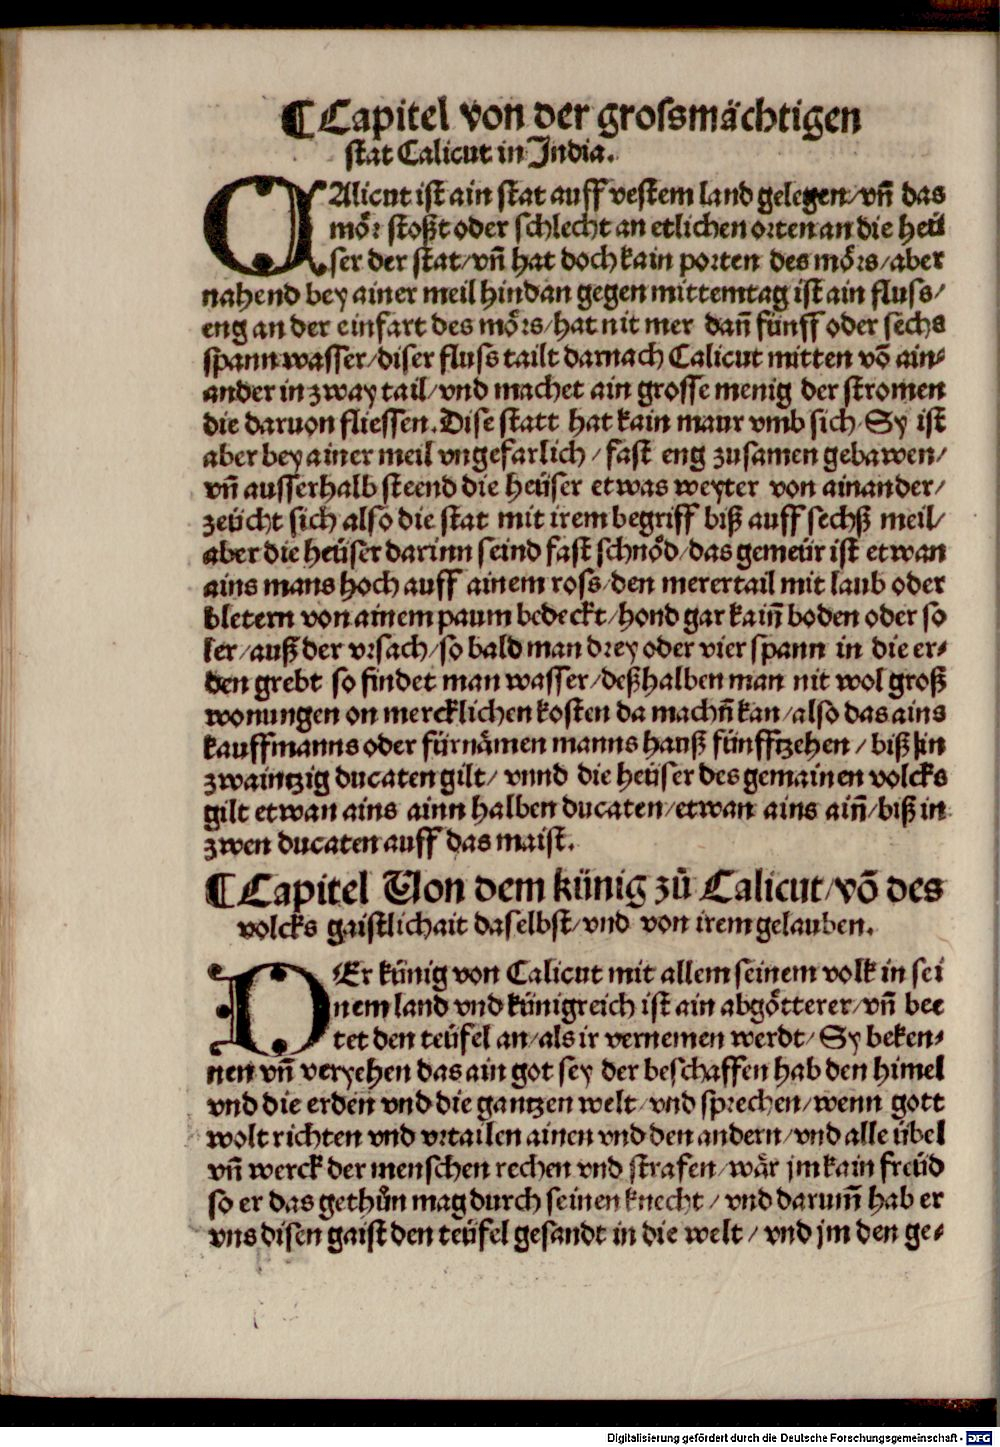 ¶ Capitel von der grossmächtigen
stat Calicut in India.
CAlicut ist ain stat auff vestem land gelegen/vñ das
mör stoßt oder schlecht an etlichen orten an die heü
ser der stat/vñ hat doch kain porten des mörs/aber
nahend bey ainer meil hindan gegen mittemtag ist ain fluss/
eng an der einfart des mörs/hat nit mer dañ fünff oder sechs
spann wasser/diser fluss tailt darnach Calicut mitten võ ain⸗
ander in zway tail/vnd machet ain grosse menig der stromen
die daruon fliessen. Dise statt hat kain maur vmb sich/Sy ist
aber bey ainer meil vngefarlich/fast eng zusamen gebawen/
vñ ausserhalb steend die heüser etwas weyter von ainander/
zeücht sich also die stat mit irem begriff biß auff sechß meil/
aber die heüser darinn seind fast schnöd/das gemeür ist etwan
ains mans hoch auff ainem ross/den merertail mit laub oder
bletern von ainem paum bedeckt/hond gar kaiñ boden oder so
ler/auß der vrsach/so bald man drey oder vier spann in die er⸗
den grebt so findet man wasser/deßhalben man nit wol groß
wonungen on mercklichen kosten da machñ kan/also das ains
kauffmanns oder fürnämen manns hauß fünfftzehen/biß in
zwaintzig ducaten gilt/vnnd die heüser des gemainen volcks
gilt etwan ains ainn halben ducaten/etwan ains aiñ/biß in
zwen ducaten auff das maist.
¶ Capitel Von dem künig zů Calicut/võ des
volcks gaistlichait daselbst/vnd von irem gelauben.
DEr künig von Calicut mit allem seinem volk in sei
nem land vnd künigreich ist ain abgötterer/vñ bee
tet den teüfel an/als ir vernemen werdt/Sy beken⸗
nen vñ veryehen das ain got sey der beschaffen hab den himel
vnd die erden vnd die gantzen welt/vnd sprechen/wenn gott
wolt richten vnd vrtailen ainen vnd den andern/vnd alle übel
vñ werck der menschen rechen vnd strafen/wär jm kain freüd
so er das gethůn mag durch seinen knecht/vnd darum̃ hab er
vns disen gaist den teüfel gesandt in die welt/vnd jm den ge⸗
Digitalisierung gefördert durch die Deutsche Forschungsgemeinschaft - DFG